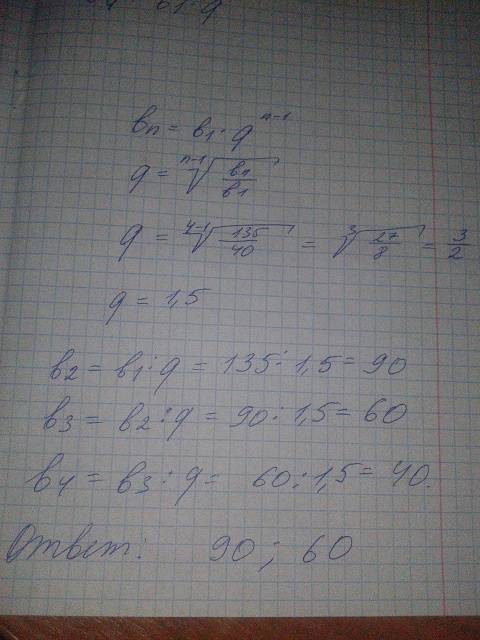 bn = b1 · q^n-1
q = ^n-1√(bn/b1)
q = ^4-1√(135/40) = ^3√(27/8) = 3/2
q = 1,5
b2 = b1 : q = 135 : 1,5 = 90
b3 = b2 : q = 90 : 1,5 = 60
b4 = b3 : q = 60 : 1,5 = 40.
Ответ: 90 ; 60